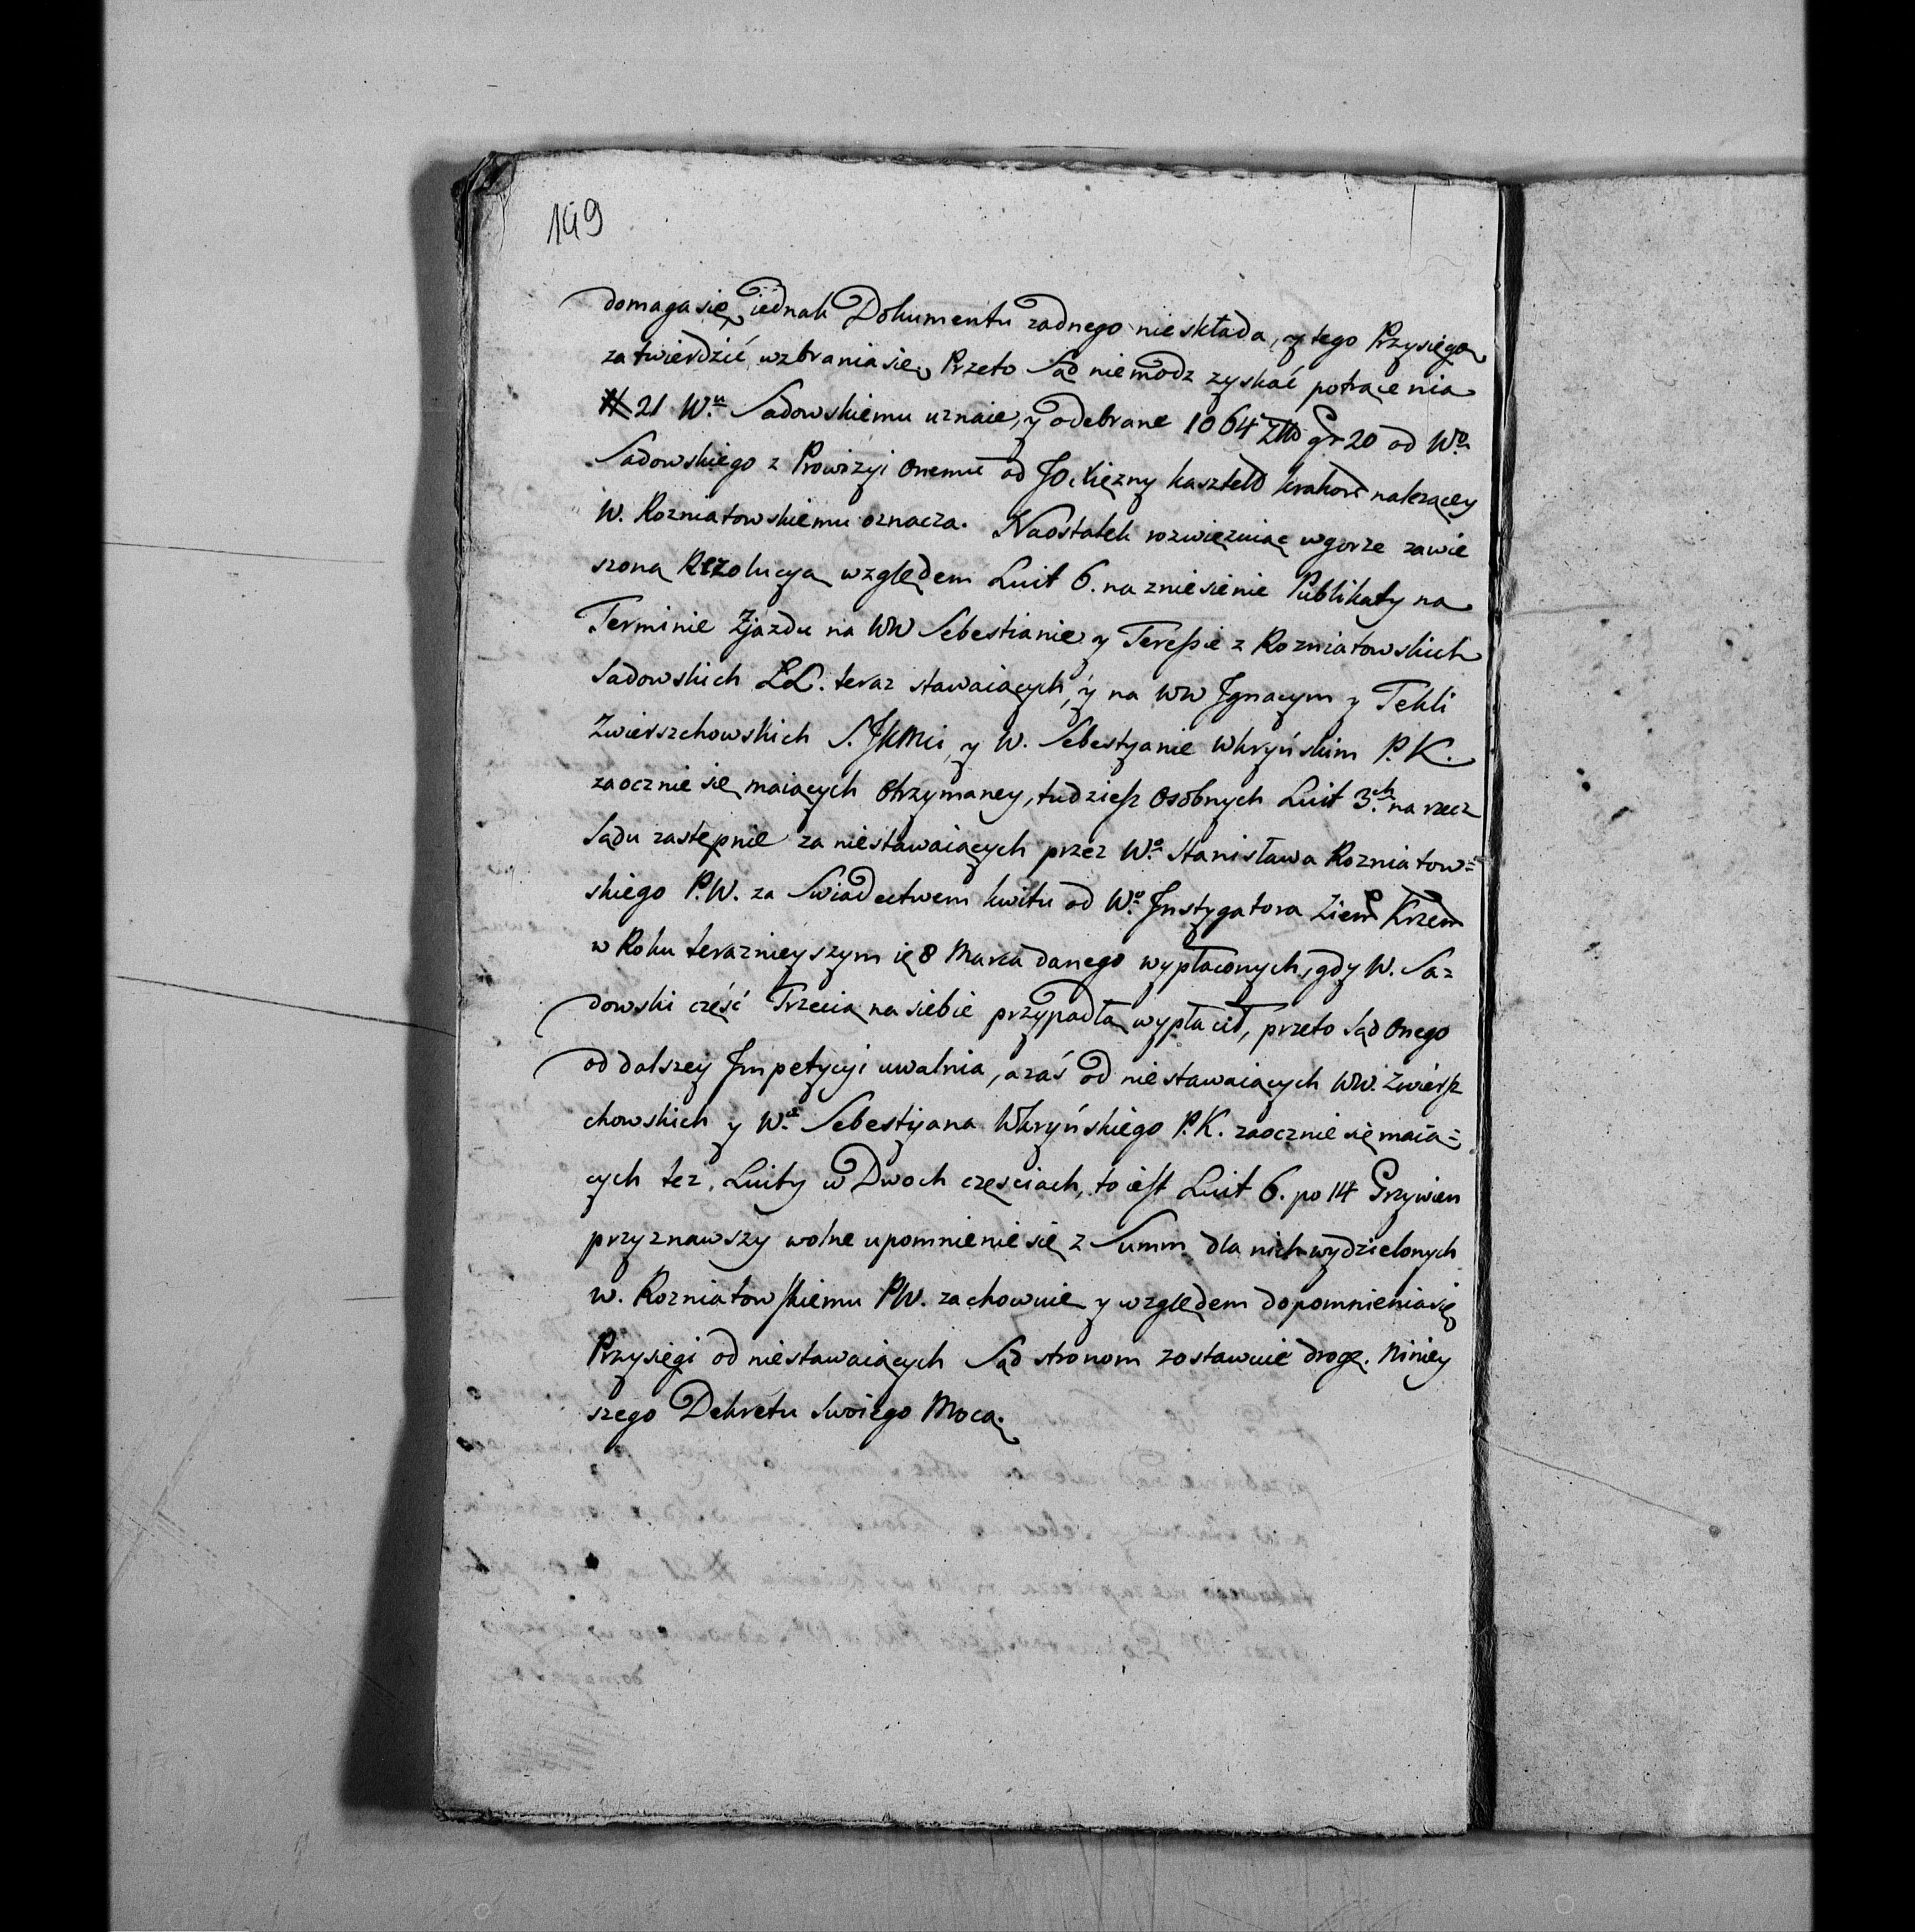 149
domaga się, iednak Dokumentu zadnego nieskłada, y tego Przysięgą
zatwierdzić wzbrania się, Przeto Sąd niemodz zyskać potrącenia
# 21 W.u Sadowskiemu uznaie, y odebrane 1064 Złł gr 20 od W.o
Sadowskiego z Prowizyi onemu od JO. Xiężny Kasztell Krakow nalezącey
W. Rozniatowskiemu oznacza. Naostatek rozwięzuiąc wgorze zawie
szoną Rezolucyą względem Luit 6. na zniesienie Publikaty na
Terminie Zjazdu na WW Sebestianie y Teressie z Rozniatowskich
Sadowskich LL. teraz stawaiących, y na WW Jgnacym y Tekli
Zwierszchowskich S. JKMci, y W. Sebestyanie Wkryńskim P.K.
zaocznie się maiących otrzymaney, tudziesz osobnych Luit 3.ch na rzecz
Sądu zastępnie za niestawaiących przez W.o Stanisława Rozniatow=
skiego P.W. za Swiadectwem kwitu od W.o Jnstygatora Ziem Krzem
w Roku teraznieyszym 8 Marca danego wypłaconych, gdy W. Sa=
dowski część Trzecią na siebie przypadłą wypłacił, przeto Sąd onego
od dalszey Jmpetycyi uwalnia, a zaś od niestawaiących WW. Zwiersz
chowskich y W.o Sebestyana Wkryńskiego P.K. zaocznie się maią=
cych też Luity w Dwoch częsciach, to iest Luit 6. po 14 Grzywien
przyznawszy wolne upomnienie się z Summ dla nich wydzielonych
W. Rozniatowskiemu PW. zachowuie y względem dopomnienia się
Przysięgi od niestawaiących Sąd stronom zostawuie drogę. Niniey
szego Dekretu swoiego Mocą.